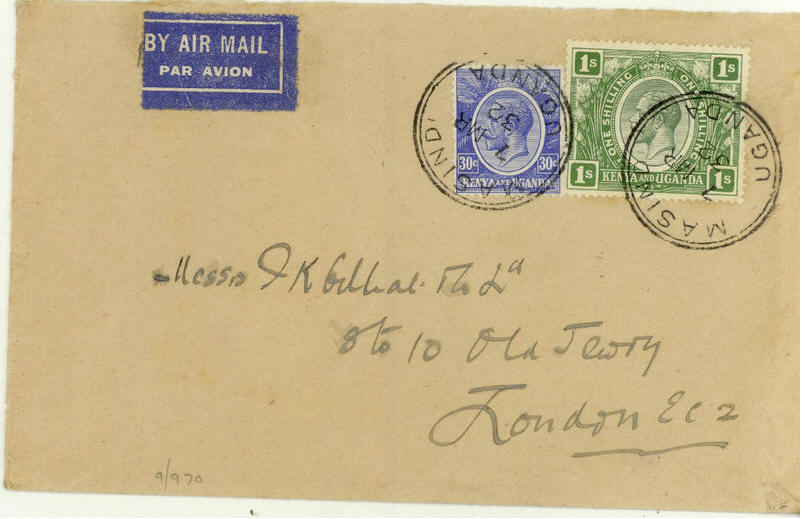 BY AIR MAIL
PAR AVION
MASINDI
UGANDA
7
MR
32
30c 30c
KENYA AND UGANDA
1S 1S
ONE SHILLING ONE SHILLING
1S 1S
KENYA AND UGANDA
MASINDI
UGANDA
7
MR
32
Messrs J K Ltd
8 to 10 Old Jewry
London EC2
9/970